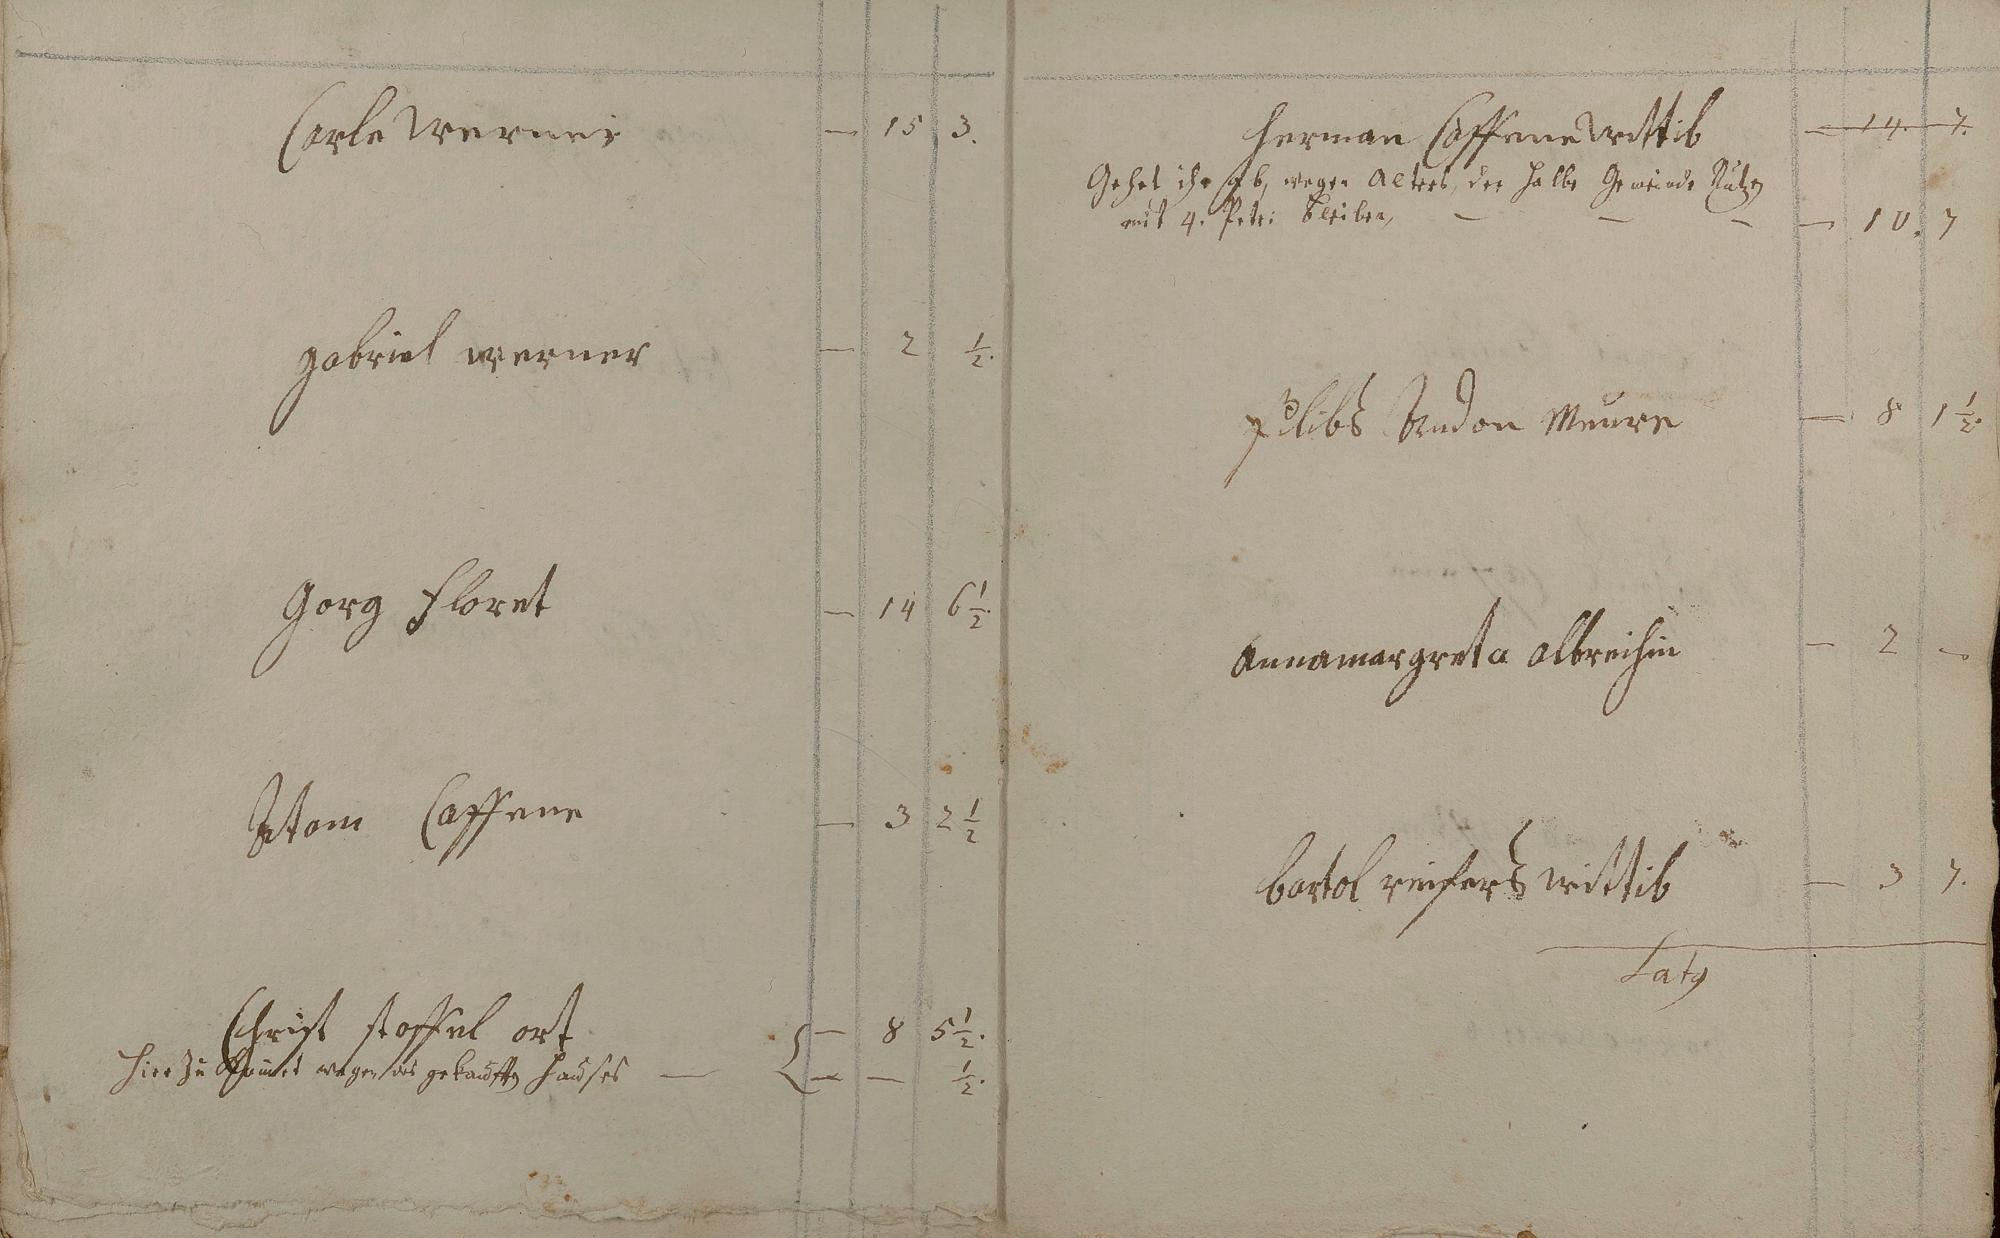 Carle Werner — 15 3.
gabriel werner — 2 ½.
Gorg Floret — 14 6½.
Atam Caffene — 3 2½
Christ stoffel ort — 8 5½.
Hier zu kommet wegen des gekaufften Hauses — — — ½.
Herman Caffene Wittib — 14. 7.
Gehet ihr ab, wegen Alters, der halbe Gemeinde Nutzen
mit 4. Petri bleiben, — — — — 10. 7
philibs Andon Meure — 8 1½.
Annamargreta Albreihin — 2 —
bartol reifers wittib — 3 7.
Latg